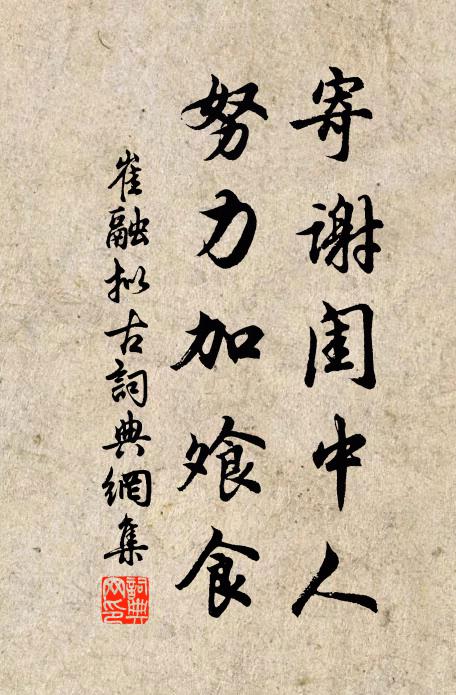 寄谢闺中人
努力加飧食
崔融拟古詞典網集
詞典网印